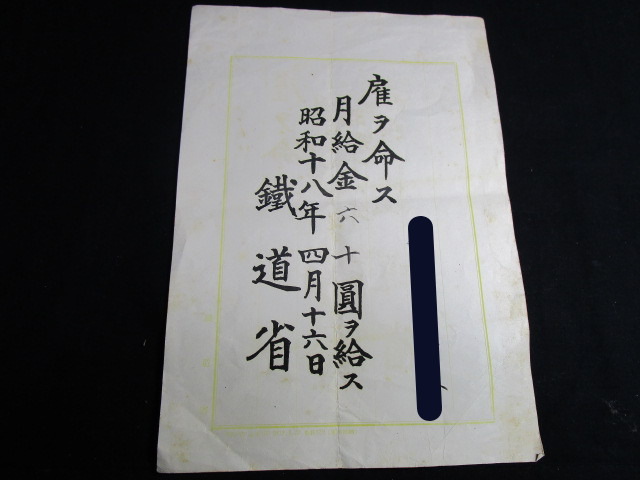 雇ヲ命ス
月給金六十圓ヲ給ス
昭和十八年四月十六日
鐵道省